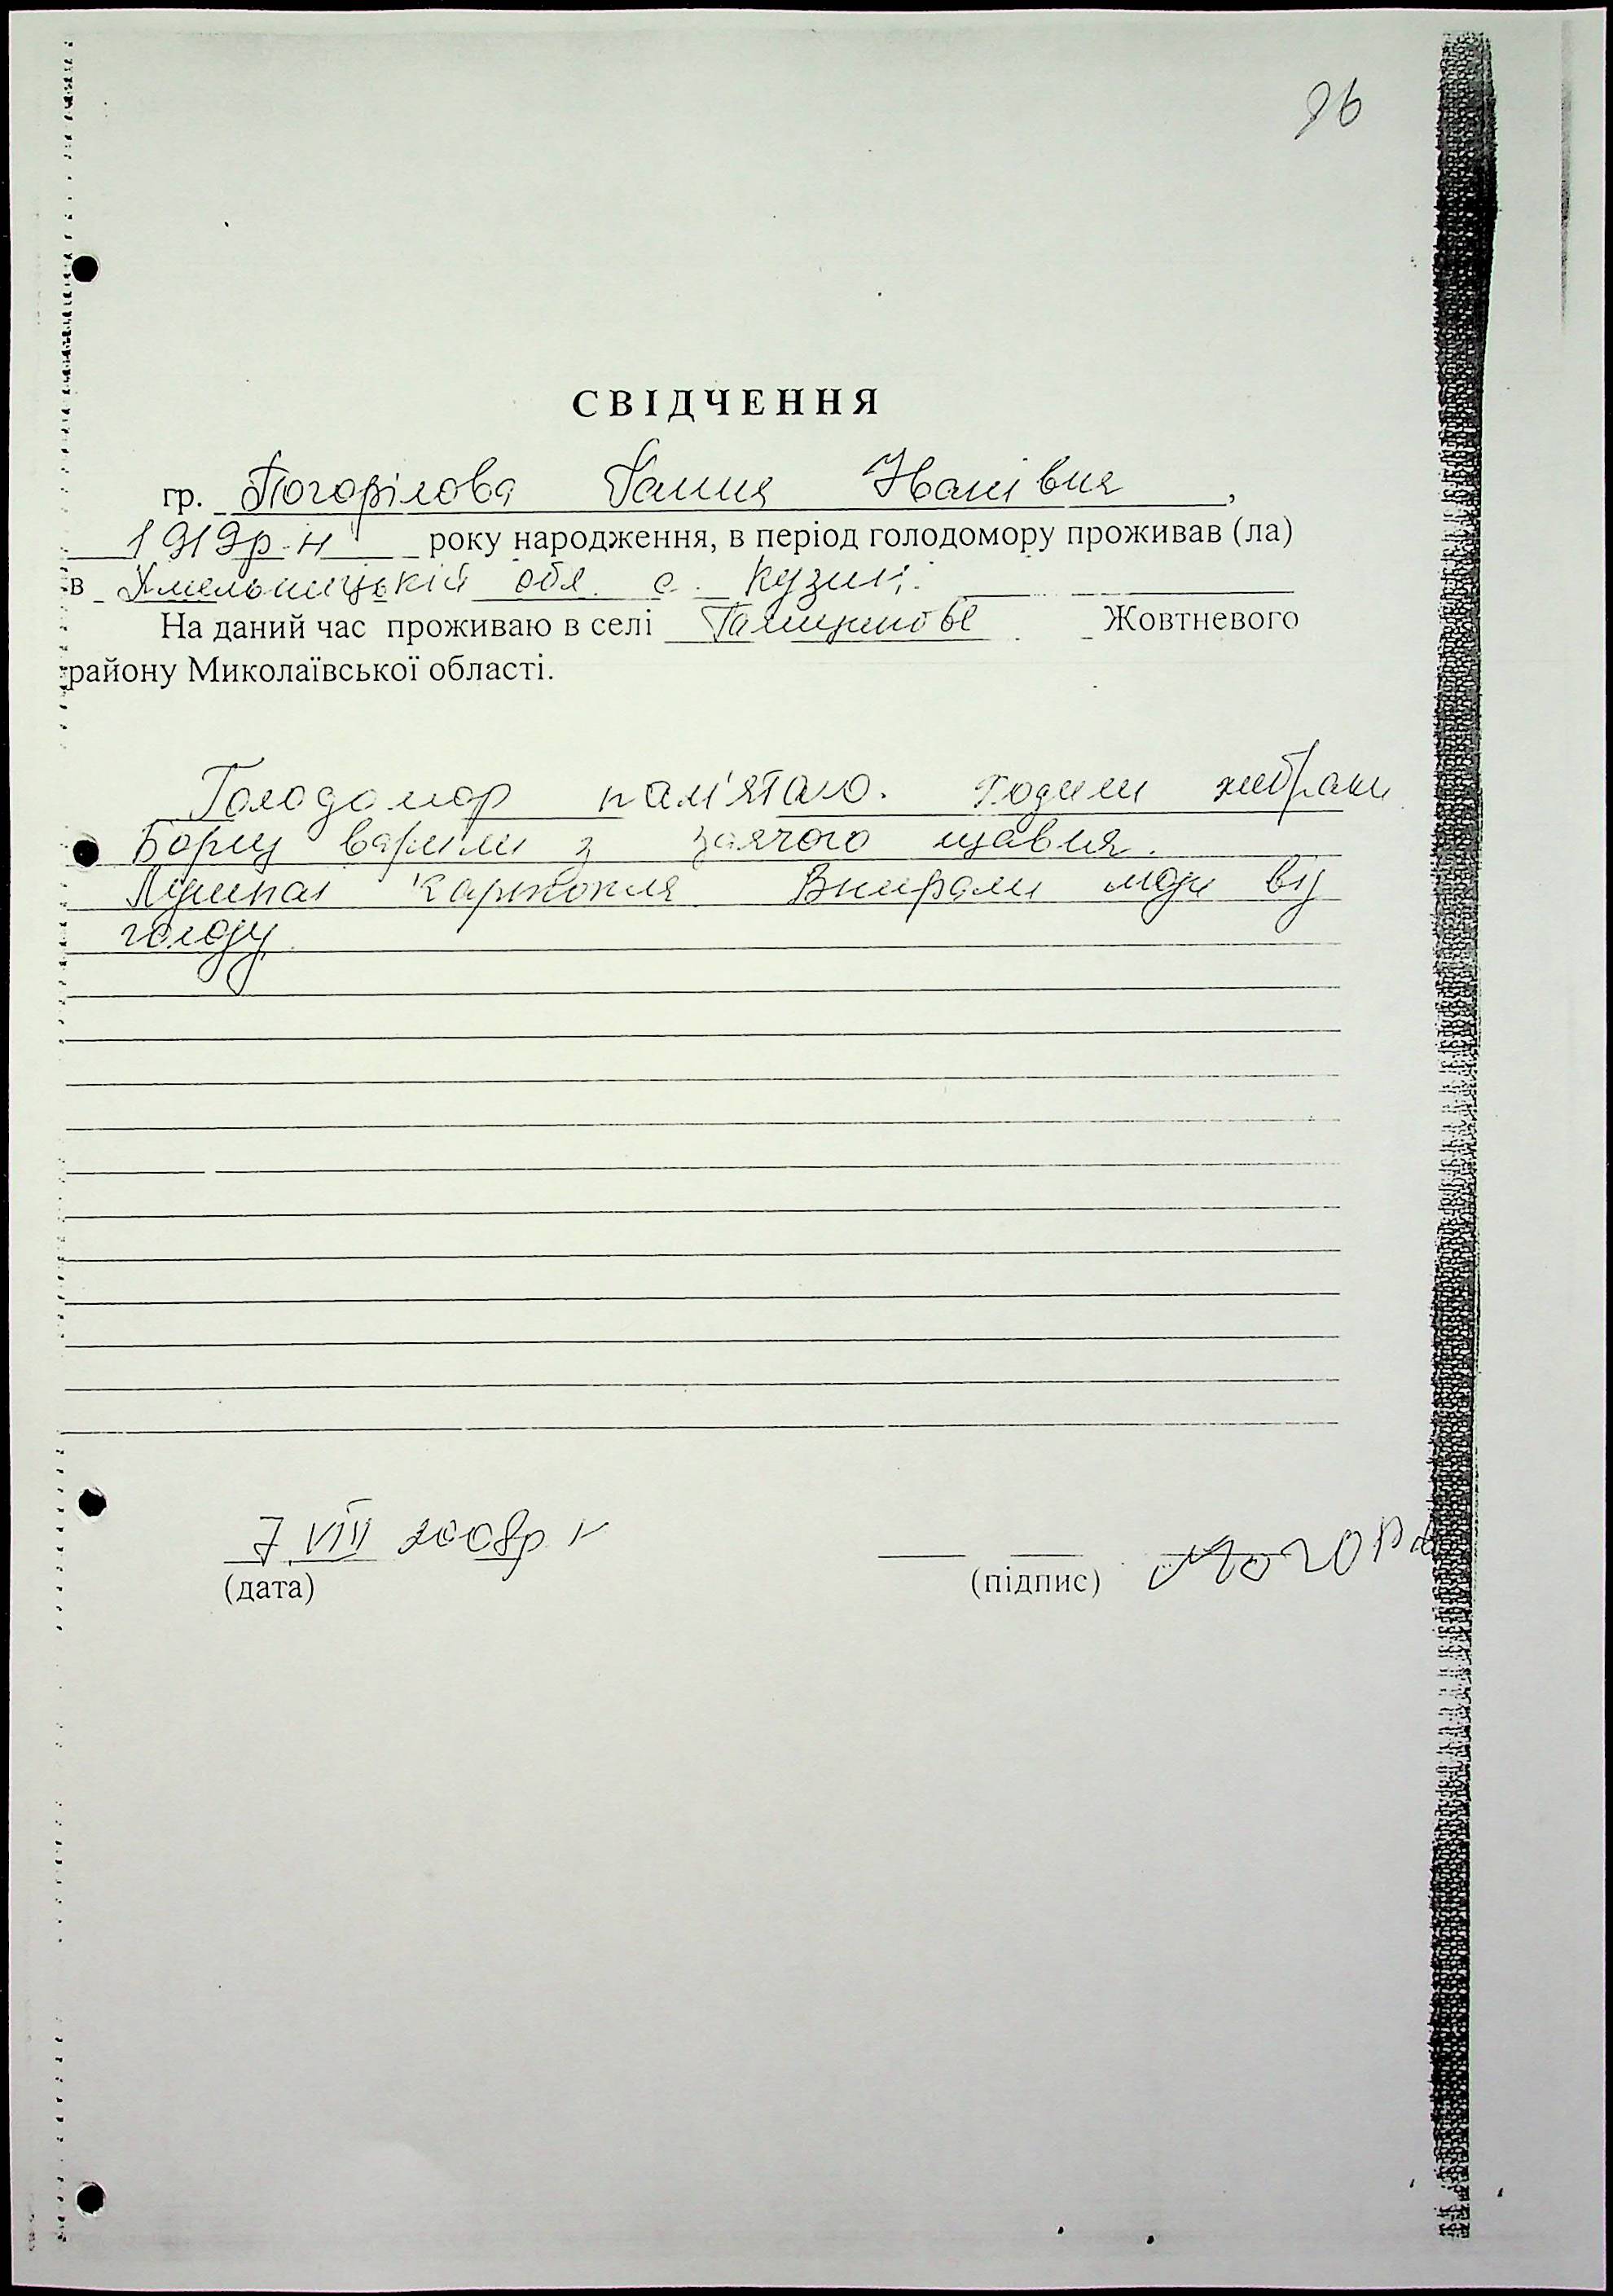 96
СВІДЧЕННЯ
гр. Погорілова Ганна Іванівна,
1919р.н року народження, в період голодомору проживав (ла)
в Хмельницькій обл. с. Кузин.
На даний час проживаю в селі Галицинове Жовтневого
району Миколаївської області.
Голодомор пам'ятаю. Ходили жебрали
Борщ варили з заячого щавля.
картопля. Вмирали люди від
голоду.
7 VIII 2008р
(дата) (підпис)